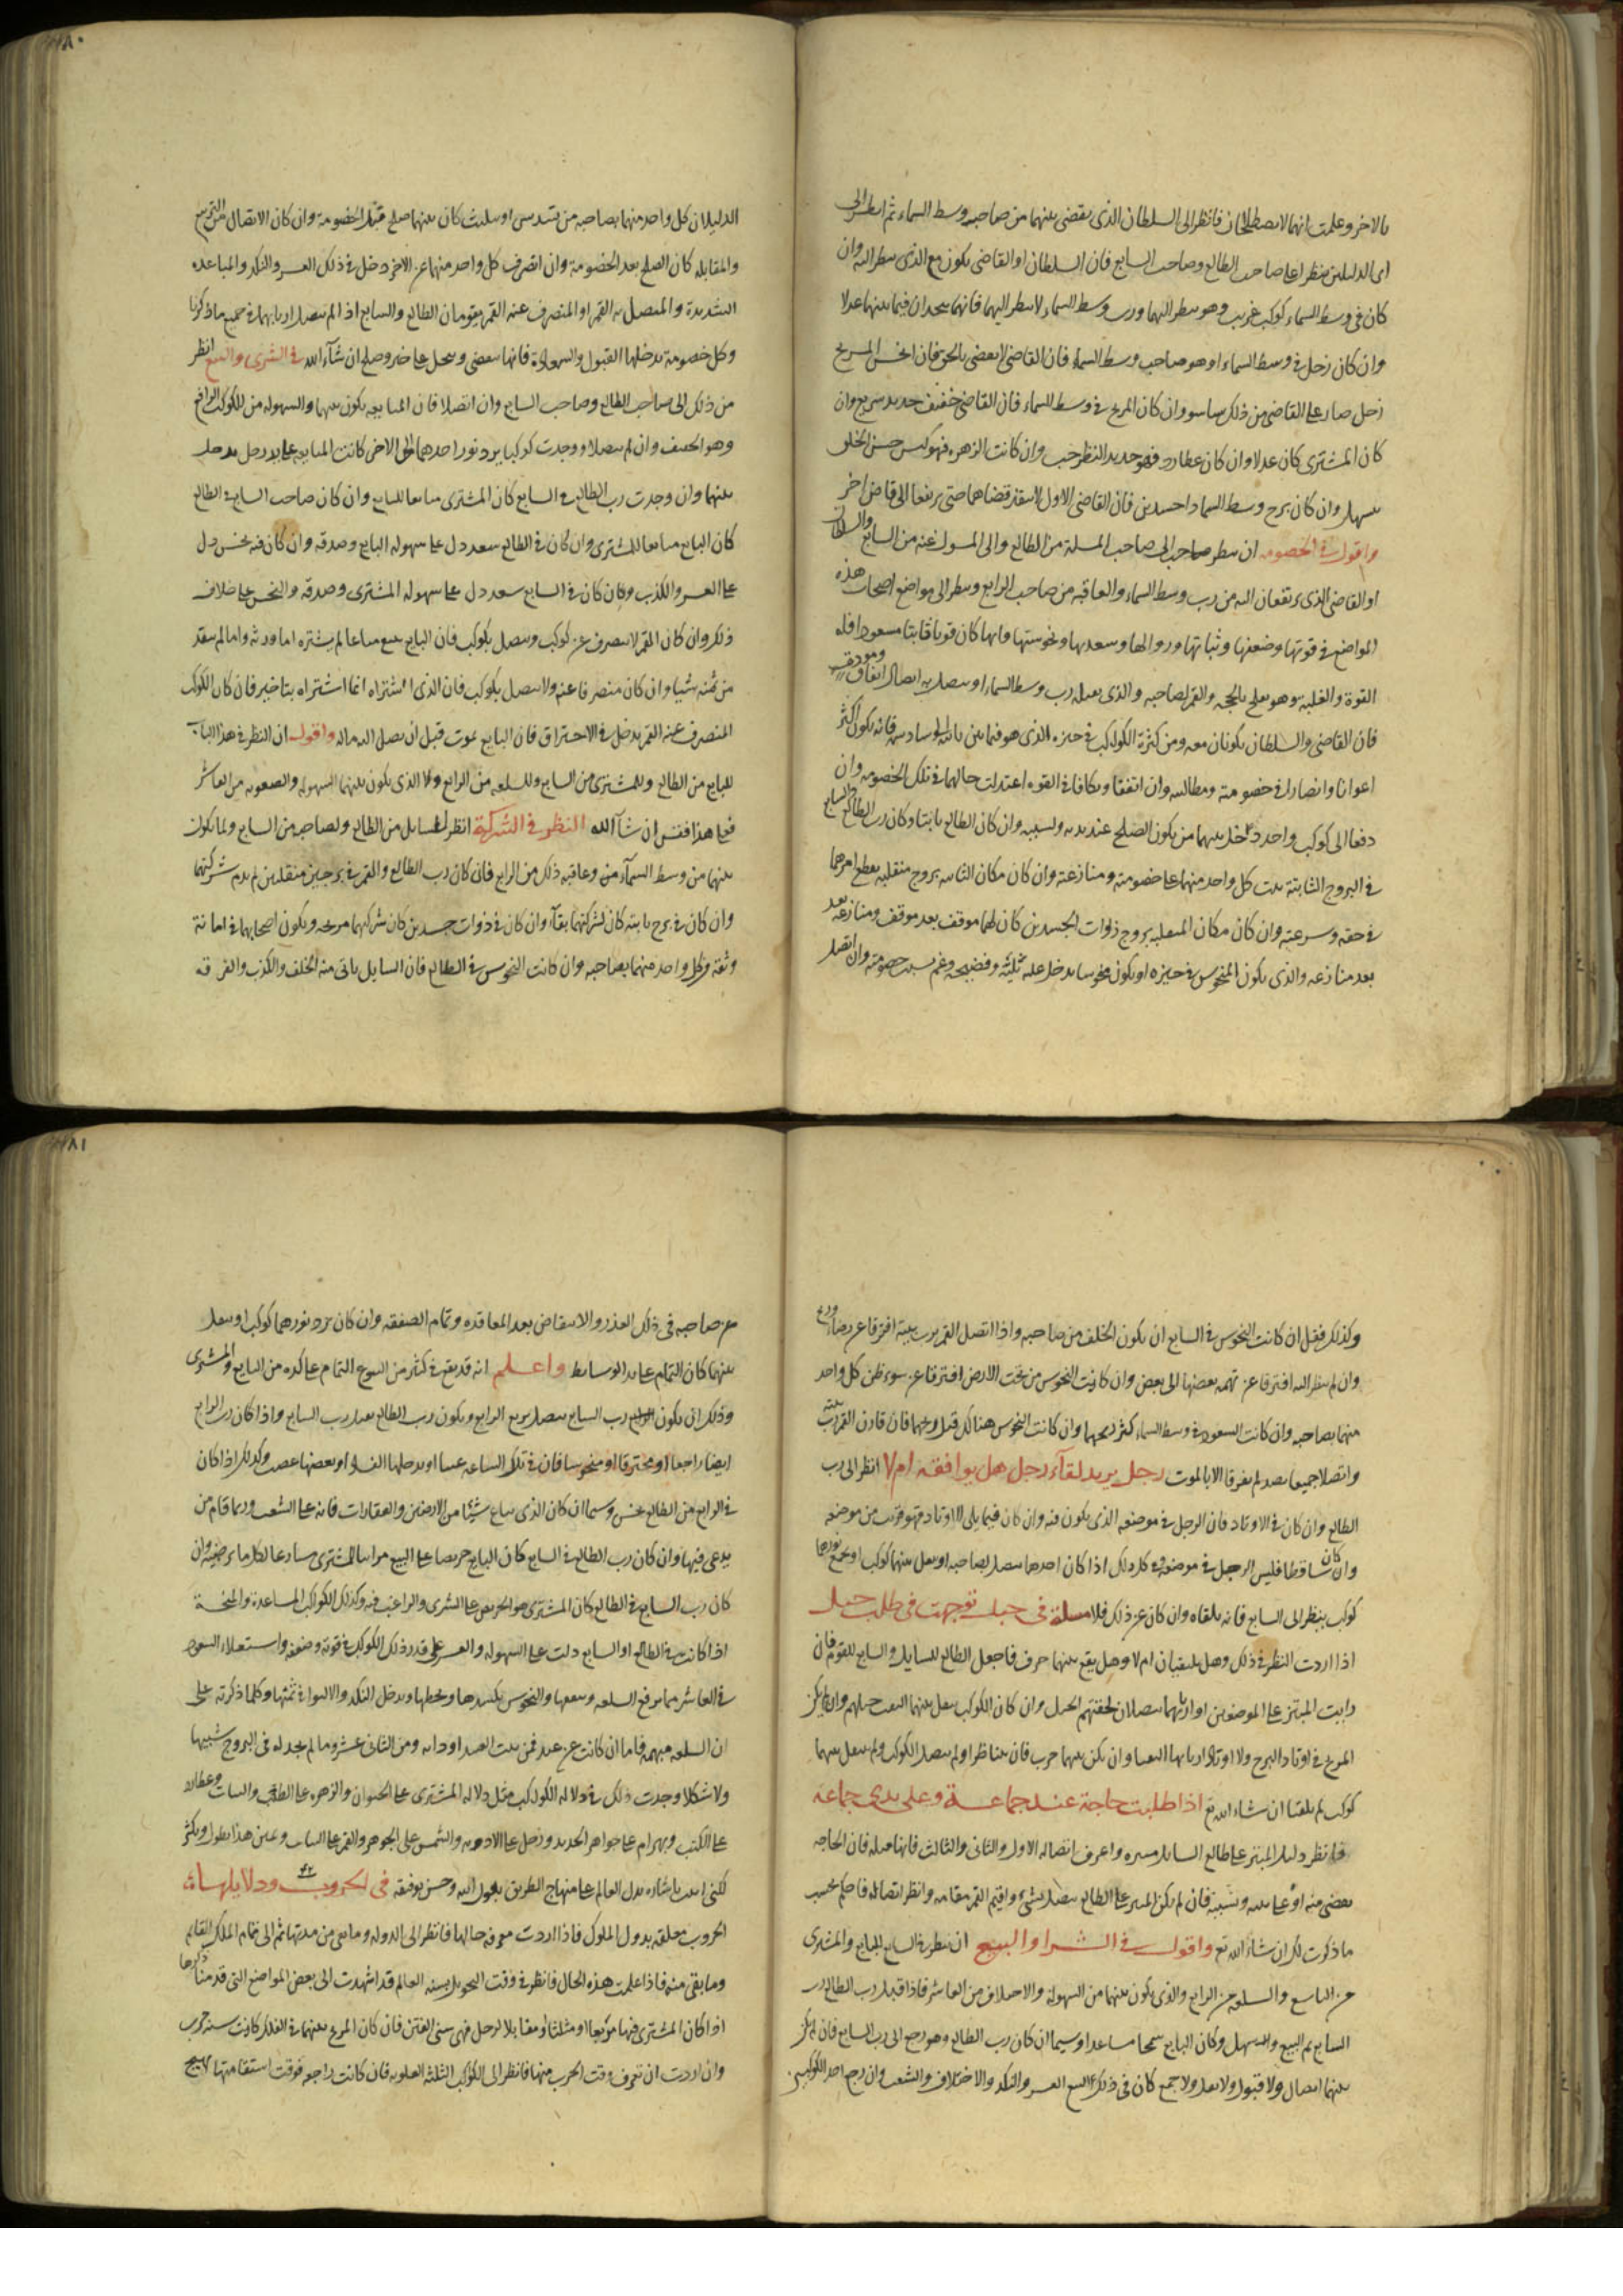 بالاخر وعلمت انهما لا يصطلحان فانظر الى السلطان الذى يقضى بينهما من صاحب وسط السماء ثم انظر الى
اى الدليلين ينظر اعنى صاحب الطالع وصاحب السابع فان السلطان او القاضى يكون مع الذى ينظر اليه وان
كان فى وسط السماء كوكب غريب وهو ينظر اليهما ورب وسط السماء لا ينظر اليهما فانهما يجدان فيما بينهما عدلا
وان كان زحل فى وسط السماء او هو صاحب وسط السماء فان القاضى لا يقضى بالحق فان انحس المريخ
زحل صار على القاضى من ذلك وان كان المريخ فى وسط السماء فان القاضى خفيف حديد سريع وان
كان المشترى كان عدلا وان كان عطارد فهو حديد النظر وان كانت الزهره فهو كيس حسن الخلق
سهل وان كان برج وسط السماء ذا جسدين فان القاضى الاول لا ينفذ قضاهما حتى يرتفعا الى قاض اخر
واقول فى الخصومه ان ينظر صاحب المسلة من الطالع والى المسول عنه من السابع والسلطان
او القاضى الذى يرتفعان اليه من رب وسط السماء والعاقبه من صاحب الرابع وينظر الى مواضع اصحاب هذه
المواضع فى قوتها وضعفها وثباتها وزوالها وسعدها ونحوستها وايها كان قويا ثابتا مسعودا فله
القوة والغلبه وهو يفلح بالحجه والقمر لصاحبه والذى يقبله رب وسط السماء او يتصل به اتصال اتفاق
فان القاضى والسلطان يكونان معه ومن كثرة الكواكب فى حيزه الذى هو فيما بين فانه يكون اكثر
اعوانا وانصارا فى خصومته ومطالبته وان اتفقا وتكافا فى القوه اعتدلت حالهما فى تلك الخصومه وان
دفعا الى كوكب واحد دخل بينهما من يكون الصلح عند يديه وبسببه وان كان الطالع ثابتا وكان رب الطالع والسابع
فى البروج الثابتة ثبت كل واحد منهما على خصومته ومنازعته وان كان مكان الثابته بروج منقلبه يقطع امرهما
فى خفه وسرعته وان كان مكان المنقلبه بروج ذوات الجسدين كان لهما موقف بعد موقف ومنازعه بعد
بعد منازعه والذى يكون المنحوس فى حيزه او يكون منحوسا يدخل عليه وفضيحه وغم بسبب خصومته وان اتصل
الدليلان كل واحد منهما بصاحبه من تسديس او تثليث كان بينهما صلح قبل الخصومة وان كان الاتصال من التربيع
والمقابله كان الصلح بعد الخصومة وان انصرف كل واحد منهما عن الاخر دخل فى ذلك العسر والنكد والمباعده
الشديدة والمتصل به القمر او المنصرف عنه القمر يقومان الطالع والسابع اذا لم يتصل اربابهما فى جميع ما ذكرنا
وكل خصومة يدخلها القبول والسعادة فانها تقضى وينحل على خير وصلح ان شآء الله فى الشرى والبيع انظر
من ذلك الى صاحب الطالع وصاحب السابع وان اتصلا فان المبايعه يكون بينهما والسهوله من الكوكب الدافع
وهو الخفيف وان لم يتصلا ووجدت كوكبا يرد نور احدهما الى الاخر كانت المبايعه على يد رجل يدخل
بينهما وان وجدت رب الطالع فى السابع كان المشترى مبايعا للبايع وان كان صاحب السابع فى الطالع
كان البايع مبايعا للمشترى وان كان فى الطالع سعد دل على سهولة البايع وصدقه وان كان فيه نحس دل
على العسر والكذب وكان كان فى السابع سعد دل على سهوله المشترى وصدقه والنحس على خلاف
ذلك وان كان القمر لا ينصرف عن كوكب ويتصل بكوكب فان البايع يبيع متاعا لم يشتره اما ورثه واما لم ينقد
من ثمنه شيا وان كان منصرفا عنه ولا يتصل بكوكب فان الذى اشتراه انما اشتراه بتاخير فان كان الكوكب
المنصرف عنه القمر يدخل فى الاحتراق فان البايع يموت قبل ان يصل اليه ماله واقول ان النظر فى هذا الباب
للبايع من الطالع وللمشترى من السابع وللسلعه من الرابع ولا الذى يكون بينهما السهوله والصعوبه من العاشر
فعلى هذا فقس ان شآ الله النظر فى الشركة انظر للسايل من الطالع ولصاحبه من السابع ولما يكون
بينهما من وسط السمآء وعاقبه ذلك من الرابع فان كان رب الطالع والقمر فى برجين منقلبين لم يدم شركتهما
وان كان فى برج ثابته كان لشركتهما بقآء وان كان فى ذوات جسدين كان شركتهما مربحه ويكون اصحابهما فى امانة
وثقه وكل واحد منهما بصاحبه وان كانت النحوس فى الطالع فان السايل ياتى منه الخلف والكذب والفرقه
وكذلك فقل ان كانت النحوس فى السابع ان يكون الخلف من صاحبه واذا اتصل القمر برب بيته افترقا عن رضاء
وان لم ينظر اليه افترقا عن تهمه بعضها الى بعض وان كانت النحوس من تحت الارض افترقا عن سوء ظن كل واحد
منهما بصاحبه وان كانت السعود فى وسط السماء كثر ربحهما وان كانت النحوس هنالك قل ربحهما فان قارن القمر رب بيته
واتصلا جميعا لم يفرقا الا بالموت رجل يريد لقآء رجل هل يوافقه ام لا انظر الى رب
الطالع وان كان فى الاوتاد فان الرجل فى موضعه الذى يكون فيه وان كان فيما يلى الاوتاد فهو قريب من موضعه
وان كان ساقطا فليس الرجل فى موضعه وفى كل ذلك اذا كان احدهما يتصل بصاحبه او ينقل بينهما كوكب او يجمع نورهما
كوكب ينظر الى السابع فانه يلقاه وان كان غير ذلك فلا مسلة فى خيل توجهت فى طلب خيل
اذا اردت النظر فى ذلك وهل يلتقيان ام لا وهل يقع بينهما حرب فاجعل الطالع للسايل والسابع للقوم فان
رايت المبتز على الموضعين او اربابهما يتصلان لحقتهم الخيل وان كان الكوكب ينقل بينهما التقت خيلهم وان لم يكن
المريخ فى اوتاد البرج ولا اوتاد اربابها التقيا وان لم يكن بينهما حرب فان لم يتناظرا ولم يتصل الكوكب ولم ينقل بينهما
كوكب لم يلتقيا ان شاء الله تع اذا طلبت حاجة عند جماعة وعلى يدى جماعة
فانظر دليل المبتز على طالع السايل وغيره واعرف اتصاله الاول والثانى والثالث فان الحاجه
تقضى منه او على يديه وبسببه فان لم يكن المبتز على الطالع يتصل بشىء واقيم القمر مقامه وانظر اتصاله فاحكم بحسب
ما ذكرت لك ان شاء الله تع واقول فى الشرا والبيع ان ينظر فى البايع والمشترى
من السابع والسلعه من الرابع والذى يكون بينهما من السهوله والاختلاف من العاشر فاذا قبل رب الطالع رب
السابع تم البيع والسهل وكان البايع سمحا مساعدا وسيما ان كان رب الطالع وهو دفع الى رب السابع فان لم يكن
بينهما اتصال ولا قبول ولا نقل ولا جمع كان فى ذلك البيع العسر والنكد والاختلاف والشغب وان رجع احد الكوكبين
عن صاحبه فى ذلك الغدر والانتقاض بعد المعاقده وتمام الصفقه وان كان يرد نورهما كوكب او ينقل
بينهما كان التمام على يد الوسايط واعلم انه قد يقع فى كثير من البيوع التمام على كره من البايع والمشترى
وذلك ان يكون رب السابع يتصل بربيع الرابع ويكون رب الطالع يقبل رب السابع واذا كان رب الرابع
ايضا راجعا او محترقا او منحوسا فان فى تلك الساعه عيبا او يدخلها الفساد او بعضها غصب وكذلك اذا كان
فى الرابع من الطالع نحس وسيما ان كان الذى يباع شيئا من الارضين والعقارات فانه على الشغب وربما قام من
يدعى فيها وان كان رب الطالع فى السابع كان البايع حريصا على البيع مراسا للمشترى مسارعا لكل ما يرضيه وان
كان رب السابع فى الطالع كان المشترى هو الحريص على الشرى والراغب فيه وكذلك الكواكب المساعدة والمنحسة
اذا كانت فى الطالع او السابع دلت على السهوله والعسر على قدر ذلك الكوكب فى قوته وضعفه واستعلاء السعود
فى العاشر مما يرفع السلعه وينفقها والنحوس يكسدها ويحطها ويدخل النكد والالتواء فى ثمنها وكلما ذكرته على
ان السلعه مبهمه فاما ان كانت عن عبد فمن بيت العبد او دابه ومن الثانى عشر وما لم يجد له فى البروج شبيها
ولا شكلا وجدت ذلك فى دلاله الكواكب مثل دلاله المشترى على الحيوان والزهره على الطيب والنبات وعطارد
على الكتب وبهرام على جواهر الحديد وزحل على الادويه والشمس على الجوهر والقمر على النبات وغير هذا يطول ويكثر
لكنى اتيت باشاره يدل العالم على منهاج الطريق بعون الله وحسن توفيقه فى الحروب ودلايلها
الحروب معلقه بدول الملوك فاذا اردت معرفه حالها فانظر الى الدوله وما بقى من مدتها ثم الى تمام الملك القايم
وما بقى منه فاذا علمت هذه الحال فانظر فى وقت التحويل بسنه العالم قد اشهدت الى بعض المواضع التى قدمنا ذكرها
اذا كان المشترى فيها مربعا او مثلثا او مقابلا لزحل فهى سنى الفتن فان كان المريخ بينهما فى الفلك كانت سنه حرب
وان اردت ان تعرف وقت الحرب منها فانظر الى الكواكب الثلثه العلويه فان كانت راجعه فوقت استقامتها تهيج